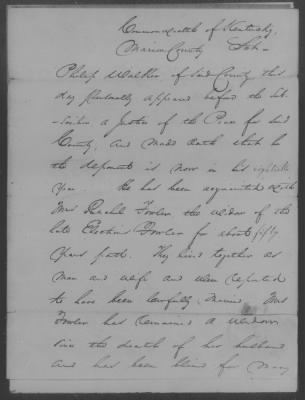 Commonwealth of Kentucky
Marion County Sct.
Philip Walker of said County this
day personally appeared before the Sub-
-scriber a Justice of the Peace for said
County, and made oath that he
the deponent is now in his eightieth
year He has been acquainted with
Mrs Rachel Fowler the widow of the
late Fowler for about fifty
years past. They lived together as
man and wife and were reputed
to have been lawfully married Mrs
Fowler has remained a widow
since the death of her husband
and has been blind for many